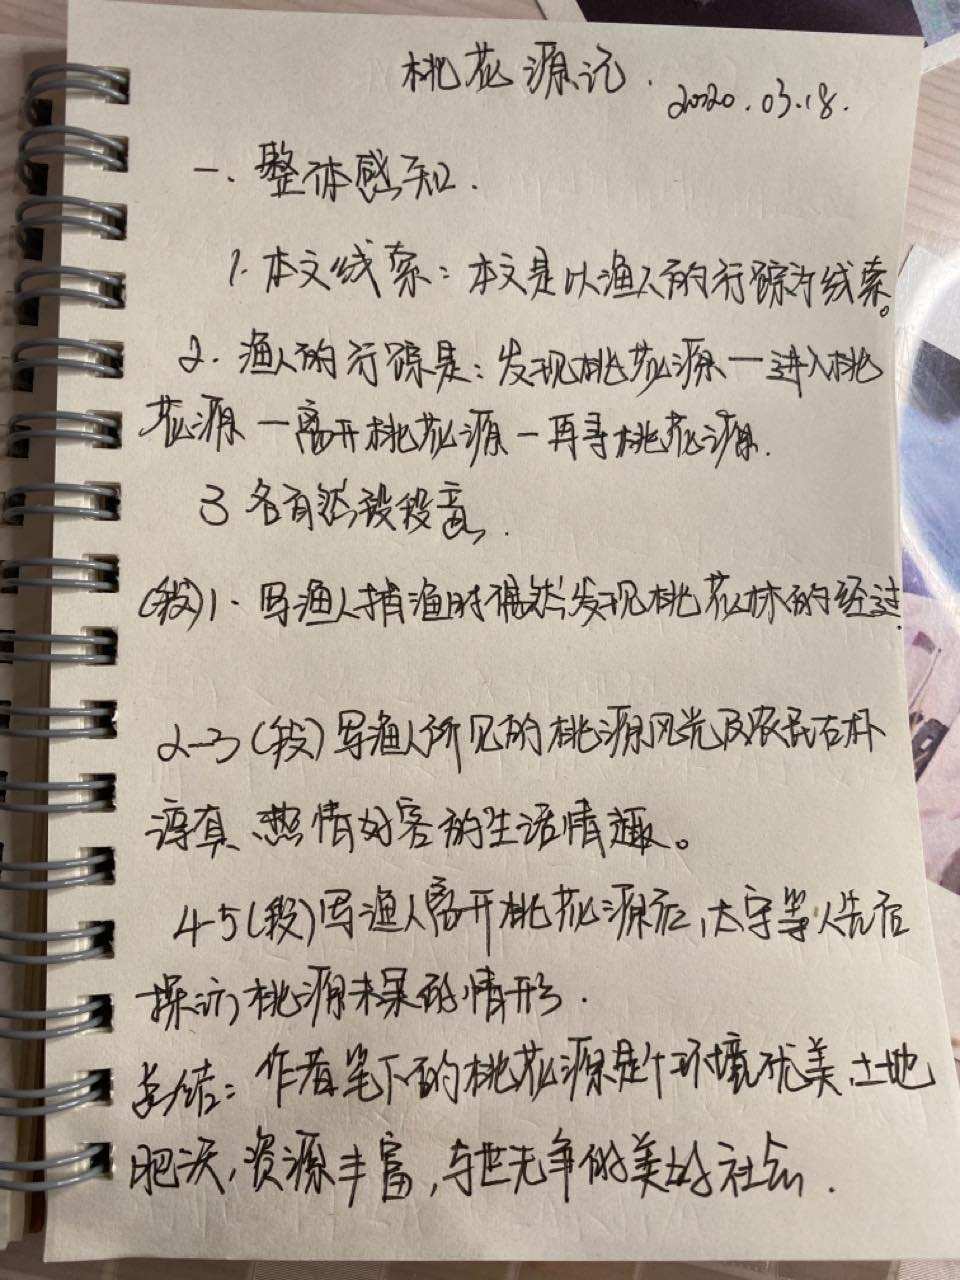 桃花源记.
2020.03.18.
一.整体感知.
1.本文线索:本文是以渔人的行踪为线索。
2.渔人的行踪是:发现桃花源—进入桃
花源—离开桃花源—再寻桃花源.
3 各自然段段意.
(段)1.写渔人捕渔时偶然发现桃花林的经过.
2-3(段)写渔人所见的桃源风光及农民古朴
淳真、热情好客的生活情趣。
4-5(段)写渔人离开桃花源后,太守等人先后
探访桃源未果的情形.
总结:作者笔下的桃花源是个环境优美、土地
肥沃,资源丰富,与世无争的美好社会.